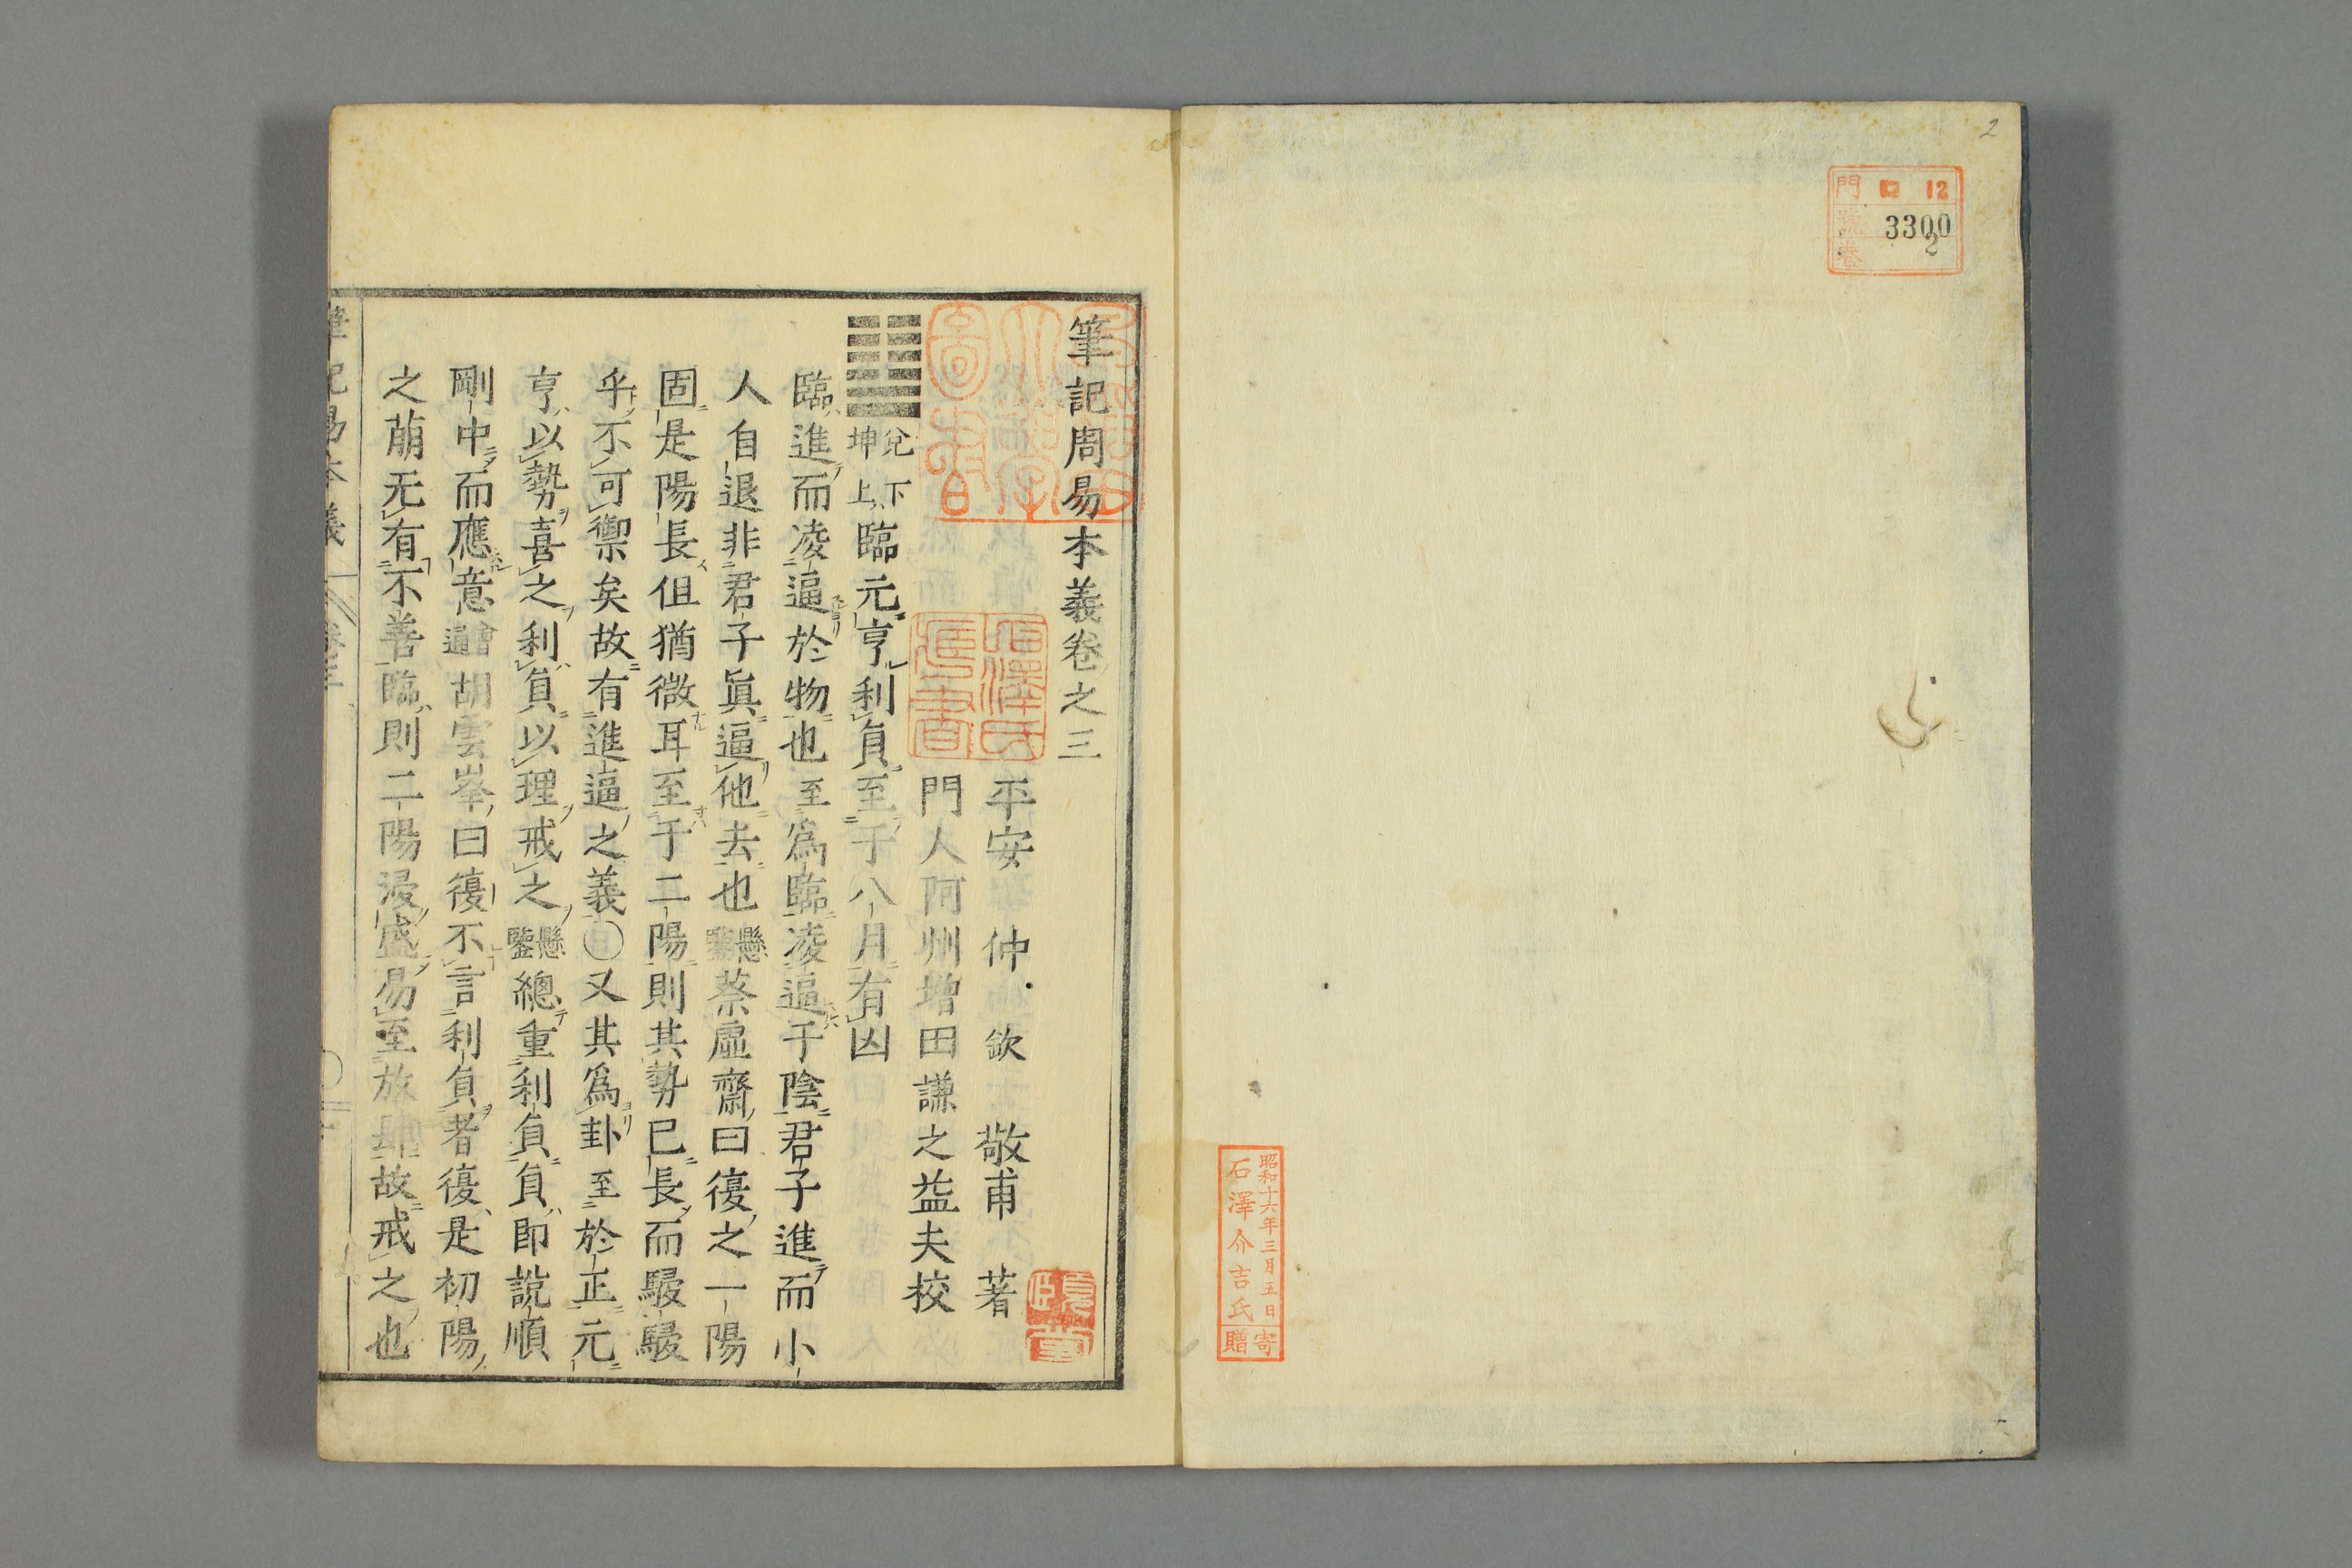 2
門 ロ 12
號 3300
卷 2
昭和十六年三月五日寄
石澤介吉氏贈
筆記周易本義卷之三
平安 仲 欽 敬甫 著
門人阿州增田謙之益夫校
兌下坤上 臨元亨利貞至于八月有凶
臨進而凌逼於物也至爲臨凌逼于陰君子進而小
人自退非君子眞逼他去也懸鑒蔡虛齋曰復之一陽
固是陽長但猶微耳至于二陽則其勢已長而駸駸
乎不可禦矣故有進逼之義〇又其爲卦至於正元
亨以勢喜之利貞以理戒之懸鑒總重利貞貞即說順
剛中而應意會通胡雲峯曰復不言利貞者復是初陽
之萠无有不善臨則二陽浸盛易至放肆故戒之也
筆記易本義 卷三
石澤氏藏書